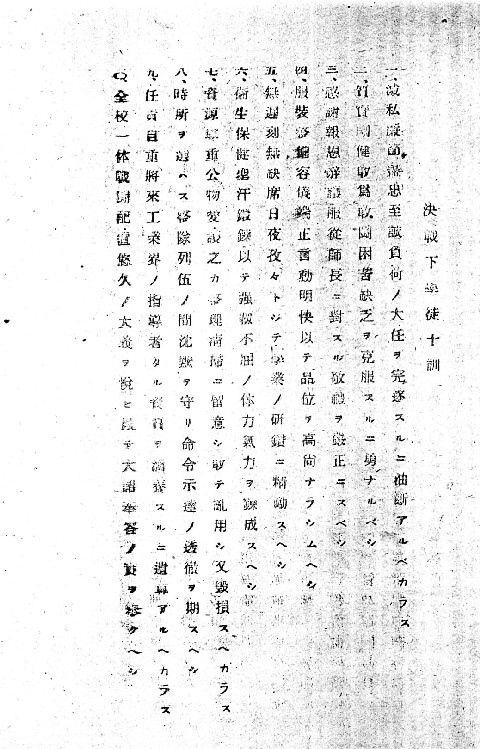 決戰下學徒十訓
一、滅私嚴節盡忠至誠負荷ノ大任ヲ完遂スルニ油斷アルベカラス
二、質實剛健敢爲敢鬪困苦缺乏ヲ克服スルニ勇ナルベシ
三、感謝報恩 服從師長ニ對スル敬禮ヲ嚴正ニスベシ
四、服裝 容儀端正言動明快以テ品位ヲ高尚ナラシムヘシ
五、無遲刻無缺席日夜孜々トシテ學業ノ研鑽ニ精勵スヘシ
六、衛生保健 汗鍛錬以テ强靱不屈ノ体力氣力ヲ錬成スヘシ
七、資源尊重公物愛護之カ修理淸掃ニ留意シ敢テ亂用シ又毀損スヘカラス
八、時所ヲ選ハス 隊列伍ノ間沈默ヲ守リ命令示達ノ透徹ヲ期スヘシ
九、任責自重將來工業界ノ指導者タル資質ヲ涵養スルニ遺算アルヘカラス
〇、全校一体戰鬪配置悠久ノ大義ヲ 大詔奉答ノ責ヲ ヘシ